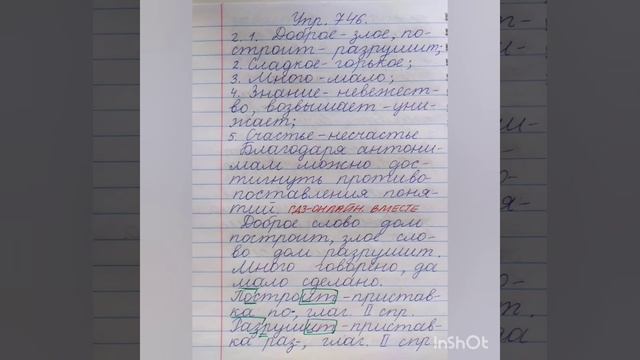 Упр. 746.
2. 1. Доброе - злое, по-
строит - разрушит;
2. Сладкое - горькое;
3. Много - мало;
4. Знание - невежест-
во, возвышает - уни-
жает;
5. Счастье - несчастье
Благодаря антони-
мам можно дос-
тигнуть противо-
поставления поня-
тий. ГДЗ-ОНЛАЙН ВМЕСТЕ
Доброе слово дом
построит, злое сло-
во дом разрушит.
Много говорено, да
мало сделано.
Построит - пристав-
ка по-, глаг. II спр.
Разрушит - пристав-
ка раз-, глаг. II спр.
InShOt